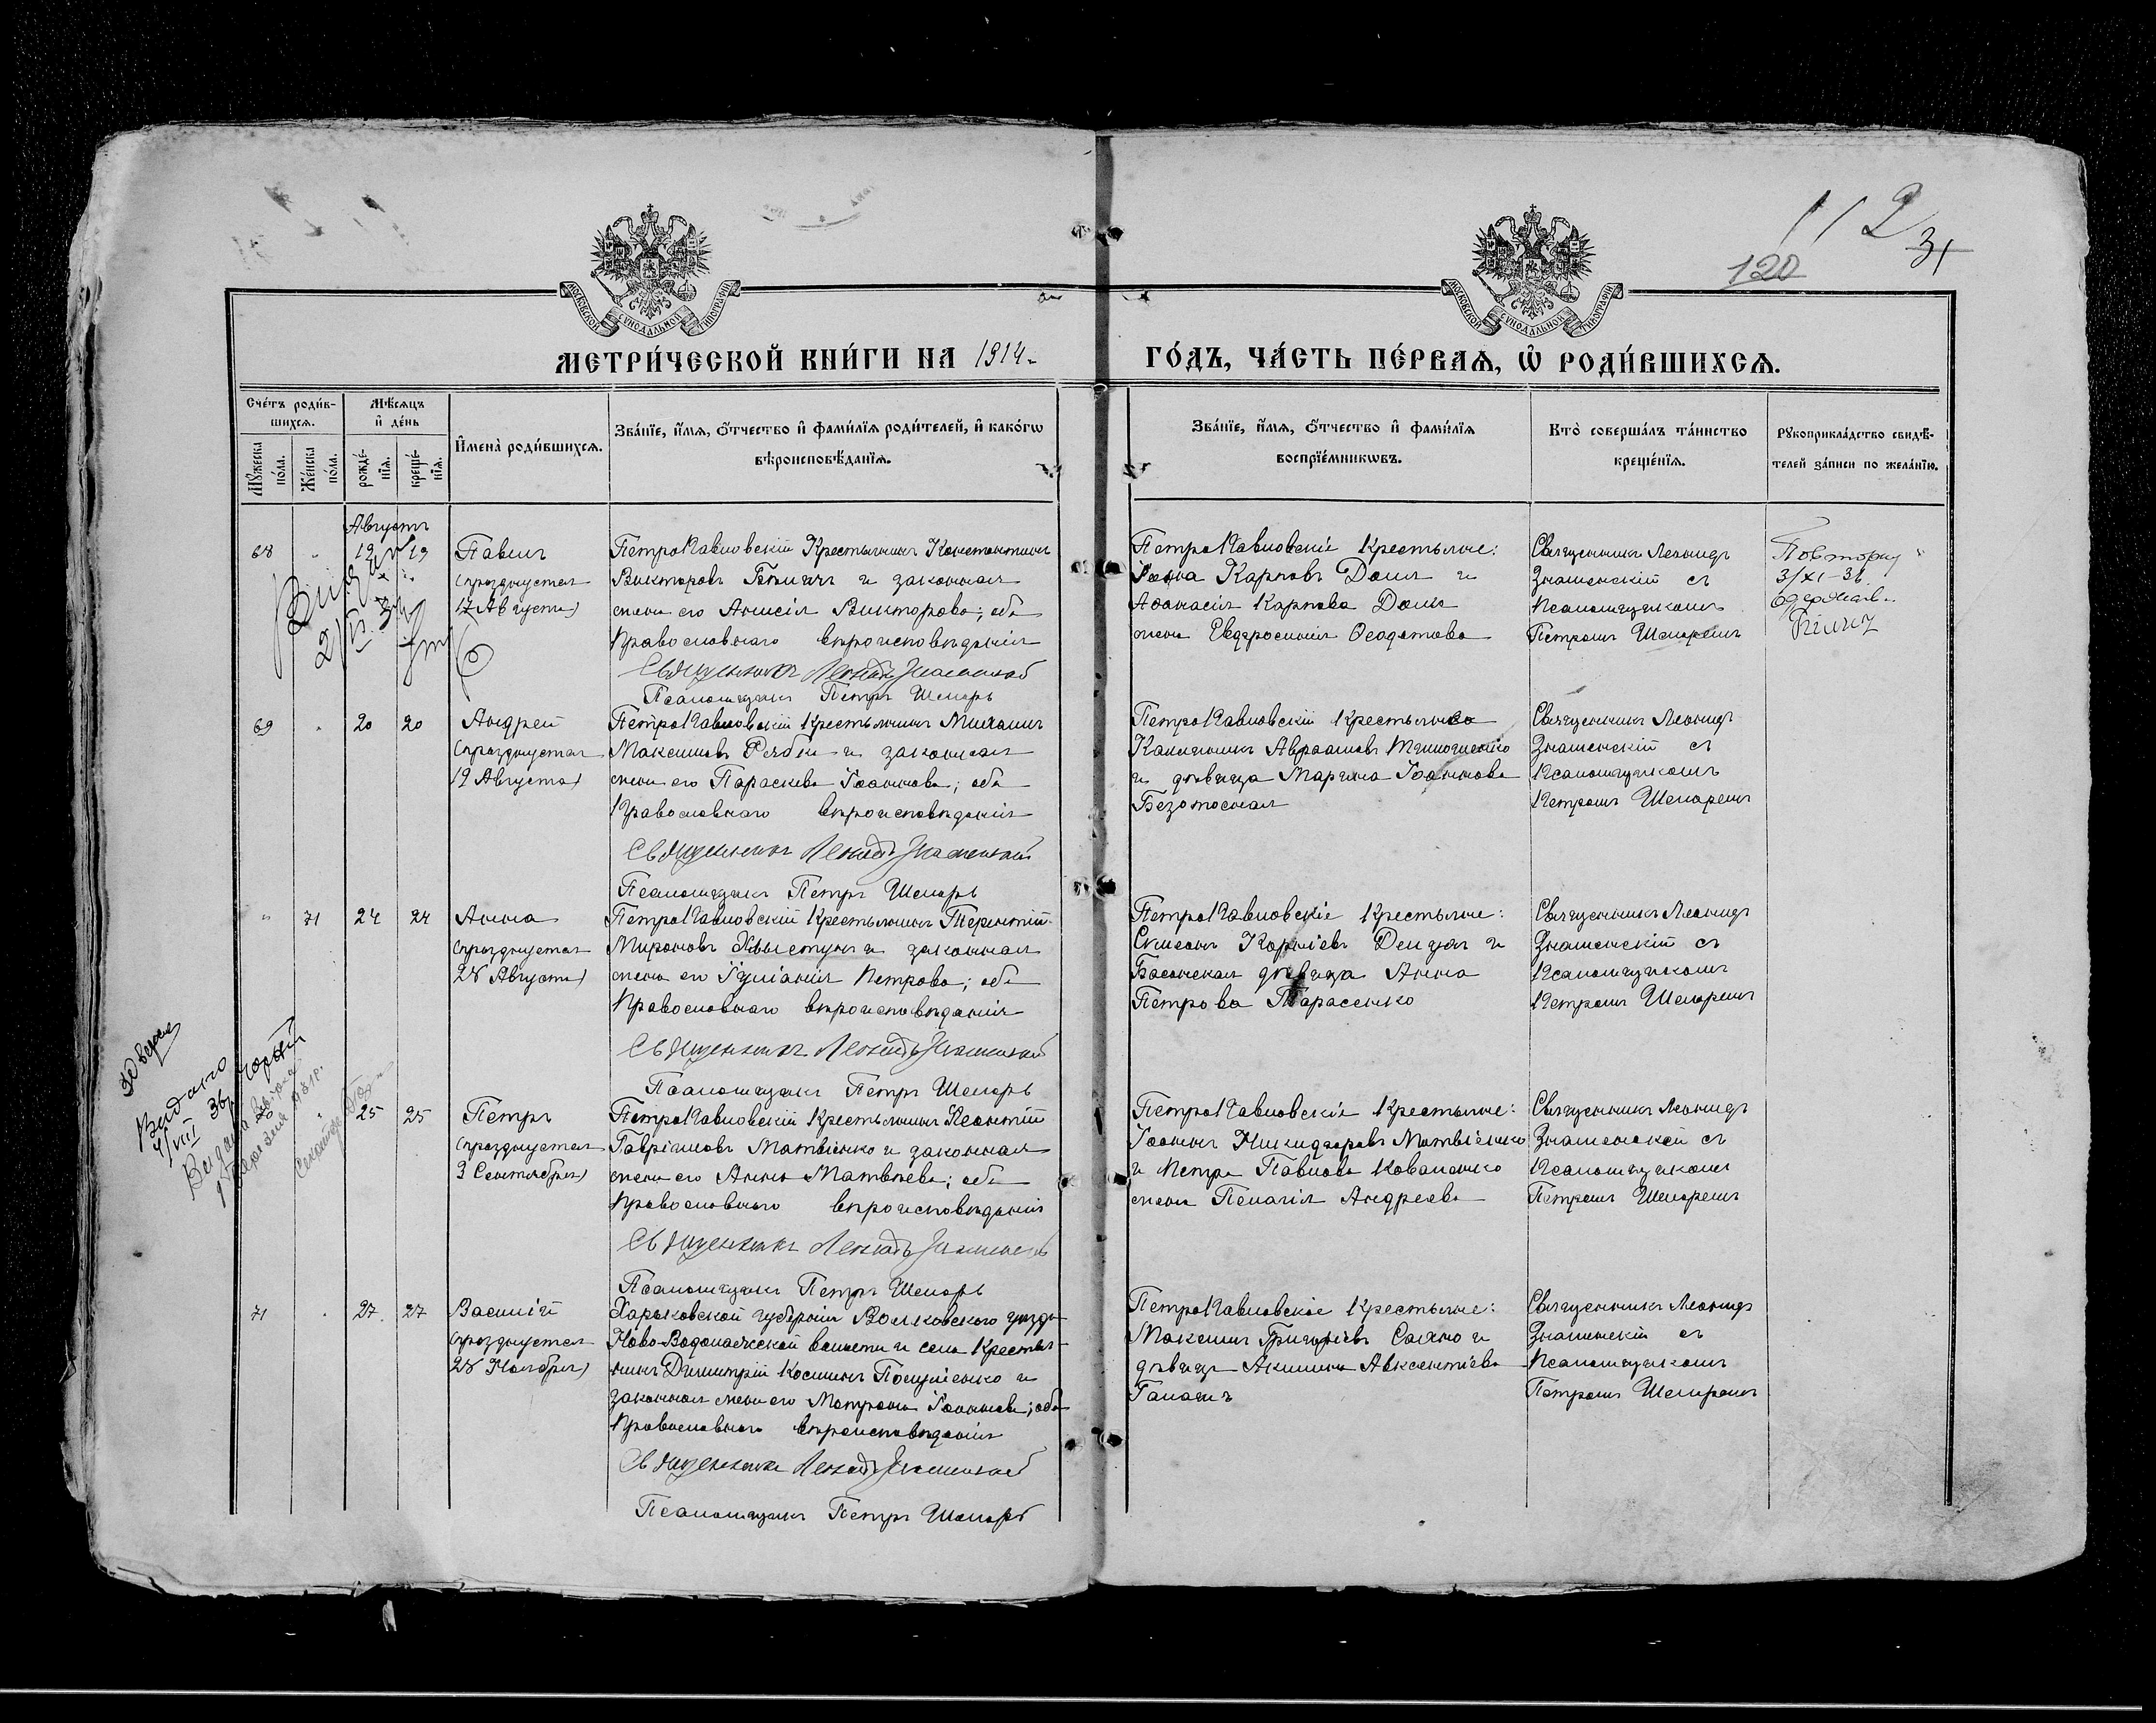 112
31
120
МОСКОВСКОЙ СУНОДАЛЬНОЙ ТИПОГРАФІИ
МОСКОВСКОЙ СУНОДАЛЬНОЙ ТИПОГРАФІИ
МЕТРИ́ЧЕСКОЙ КНИ́ГИ НА 1914
ГО́ДЪ, ЧА́СТЬ ПЕ́РВАѦ, Ѡ҆ РОДИ́ВШИХСѦ.
Сче́тъ роди́в-
шихсѧ.
Мѣ́сѧцъ
и҆ де́нь
И҆мена̀ роди́вшихсѧ.
Зва́нїе, и҆́мѧ, ѻ҆́тчество и҆ фами́лїѧ роди́телей, и҆ како́гѡ
вѣроисповѣ́данїѧ.
Мꙋ́жеска по́ла.
Же́нска по́ла.
рожде́-
нїѧ.
креще́-
нїѧ.
Зва́нїе, и҆́мѧ, ѻ҆́тчество и҆ фами́лїѧ
воспрїе́мникѡвъ.
Кто̀ соверша́лъ та́инство
креще́нїѧ.
Рꙋкоприкла́дство свидѣ́-
телей за́писи по жела́нїю.
Августъ
68 " 19 19 Павелъ
(празднуется
17 Августа)
ПетроПавловскій Крестьянинъ Константинъ
Викторовъ и законная
жена его Викторова; оба
Православнаго вѣроисповѣданія
Священникъ Леонидъ Знаменскій
Псаломщикъ Петръ Шепарь
ПетроПавловскіе Крестьяне:
Іоанъ Карповъ и
Аѳанасія Карпова
жена Евфросинія Ѳеодотова
Священникъ Леонидъ
Знаменскій съ
Псаломщикомъ
Петромъ Шепаремъ
Повторну
3/XI-36
69 " 20 20 Андрей
(празднуется
19 Августа)
ПетроПавловскій Крестьянинъ Михаилъ
Максимовъ и законная
жена его Параскева Іоаннова; оба
Православнаго вѣроисповѣданія
Священникъ Леонидъ Знаменскій
Псаломщикъ Петръ Шепарь
Авраамовъ
и дѣвица Марина Іоаннова
Священникъ Леонидъ
Знаменскій съ
Псаломщикомъ
Петромъ Шепаремъ
" 71 24 24 Анна
(празднуется
28 Августа)
ПетроПавловскій Крестьянинъ Терентій
Мироновъ Хвыстунъ и законная
жена его Іуліанія Петрова; оба
Православнаго вѣроисповѣданія
Священникъ Леонидъ Знаменскій
Псаломщикъ Петръ Шепарь
ПетроПавловскіе Крестьяне:
Симеонъ и
дѣвица Анна
Петрова Тарасенко
Священникъ Леонидъ
Знаменскій съ
Псаломщикомъ
Петромъ Шепаремъ
Видано
4/VIII 36
" 25 25 Петръ
(празднуется
3 Сентября)
ПетроПавловскій Крестьянинъ Леонтій
Гавріиловъ Матвіенко и законная
жена его Анна Матвѣева; оба
Православнаго вѣроисповѣданія
Священникъ Леонидъ
Псаломщикъ Петръ Шепарь
ПетроПавловскіе Крестьяне:
Іоаннъ Никифоровъ Матвіенко
и Петра Павлова Коваленко
жена Пелагія Андреева
Священникъ Леонидъ
Знаменскій съ
Псаломщикомъ
Петромъ Шепаремъ
71 " 27 27 Василій
(празднуется
28 Ноября)
Харьковской губерніи Волковского уѣзда
Ново-Водолажской волости и села Крестья-
нинъ Димитрій Косминъ и
законная жена его Матрона Іоаннова; оба
Православнаго вѣроисповѣданія
Священникъ Леонидъ Знаменскій
Псаломщикъ Петръ Шепарь
ПетроПавловскіе Крестьяне:
Максимъ Григорьевъ Сахно и
дѣвица Акилина Авксентіева
Священникъ Леонидъ
Знаменскій съ
Псаломщикомъ
Петромъ Шепаремъ